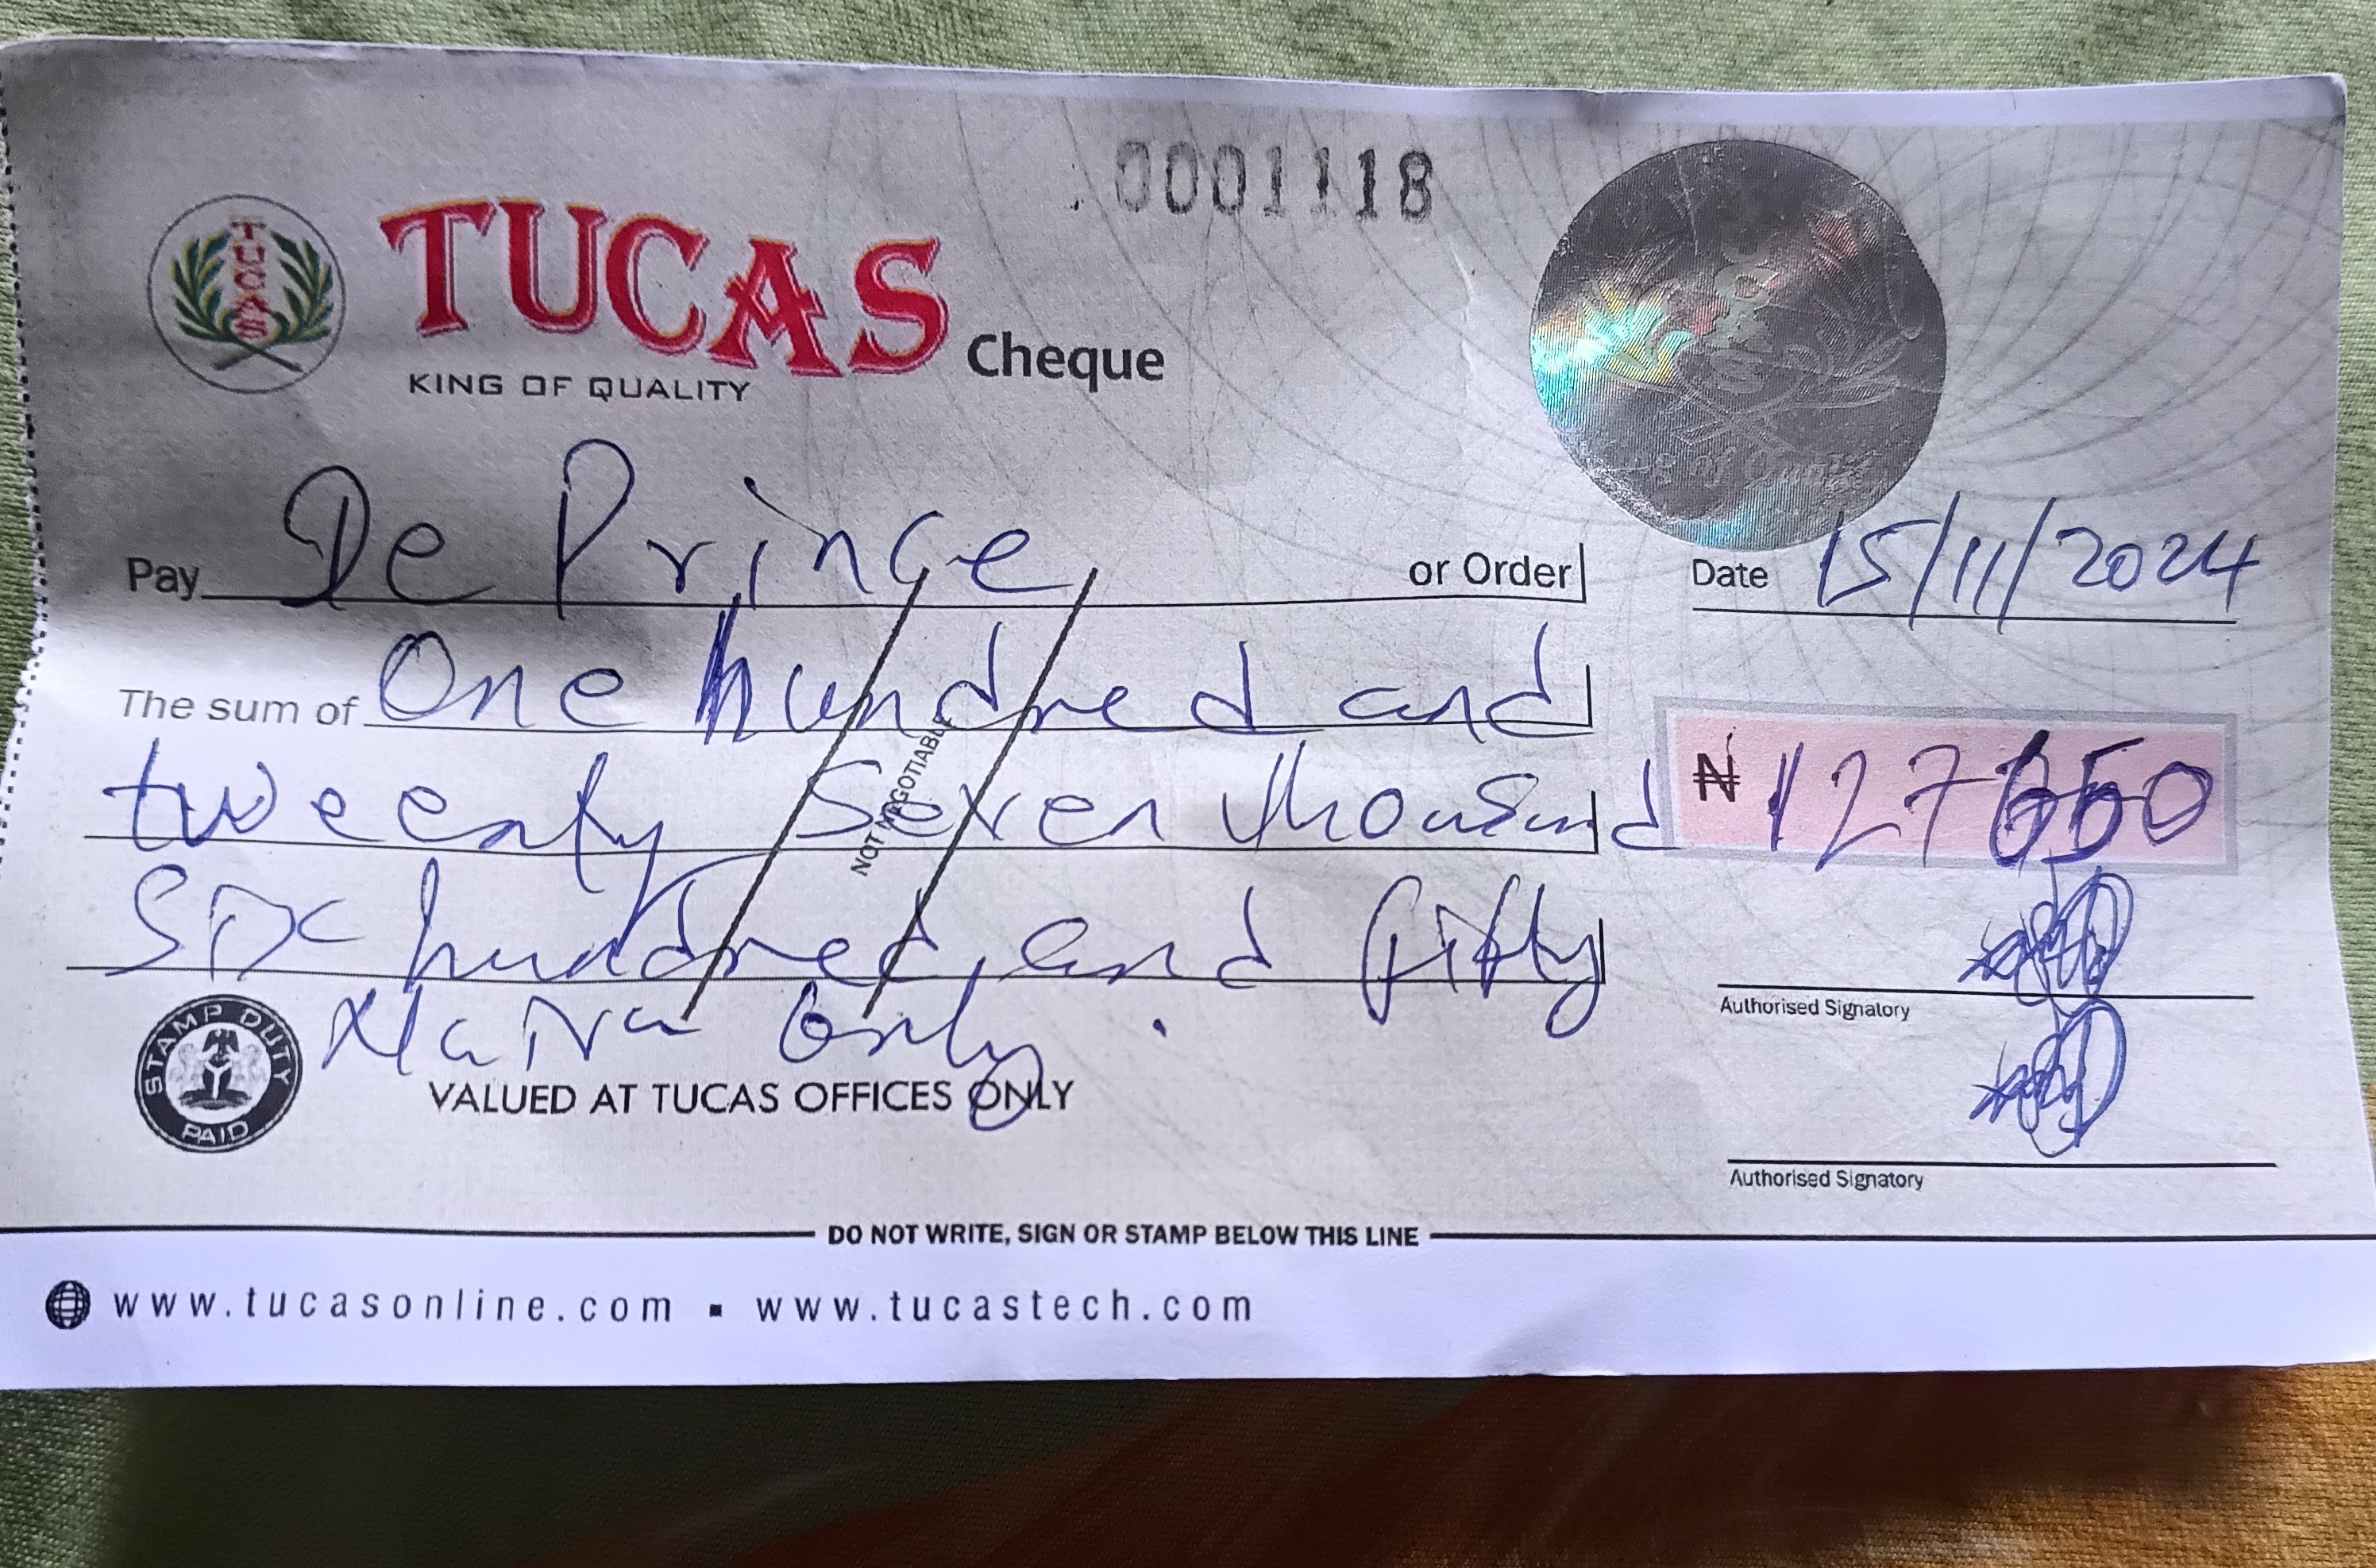 0001118
TUCAS
TUCAS Cheque
KING OF QUALITY
Pay De Prince or Order
Date 15/11/2024
The sum of One hundred and
tweenty Seven thousand
₦ 127650
NOT NEGOTIABLE
Six hundred and fifty
Naira Only.
Authorised Signatory
STAMP DUTY
PAID
VALUED AT TUCAS OFFICES ONLY
Authorised Signatory
DO NOT WRITE, SIGN OR STAMP BELOW THIS LINE
www.tucasonline.com ▪ www.tucastech.com